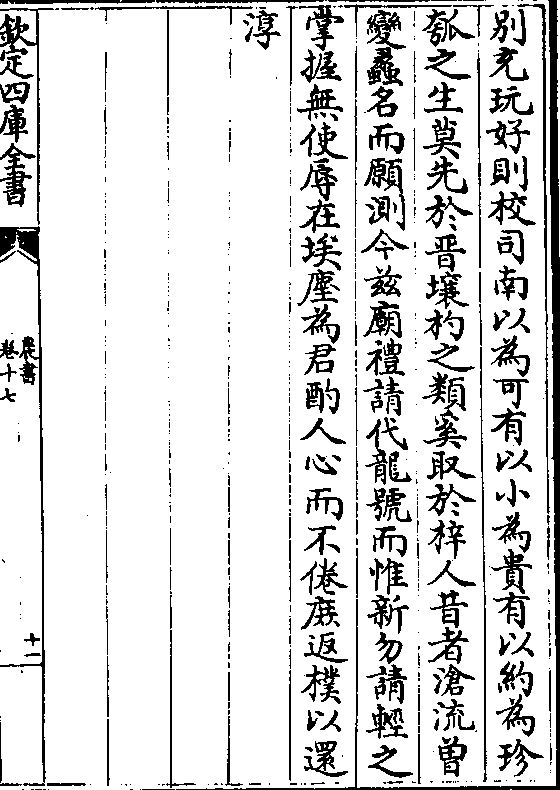 別充玩好則校司南以為可有以小為貴有以約為珍
瓠之生莫先於晋壤杓之類奚取於梓人昔者滄流曽
變蠡名而願測今兹廟禮請代龍號而惟新勿請輕之
掌握無使辱在埃塵為君酌人心而不倦庶返樸以還
淳
欽定四庫全書
農書
卷十七
十一